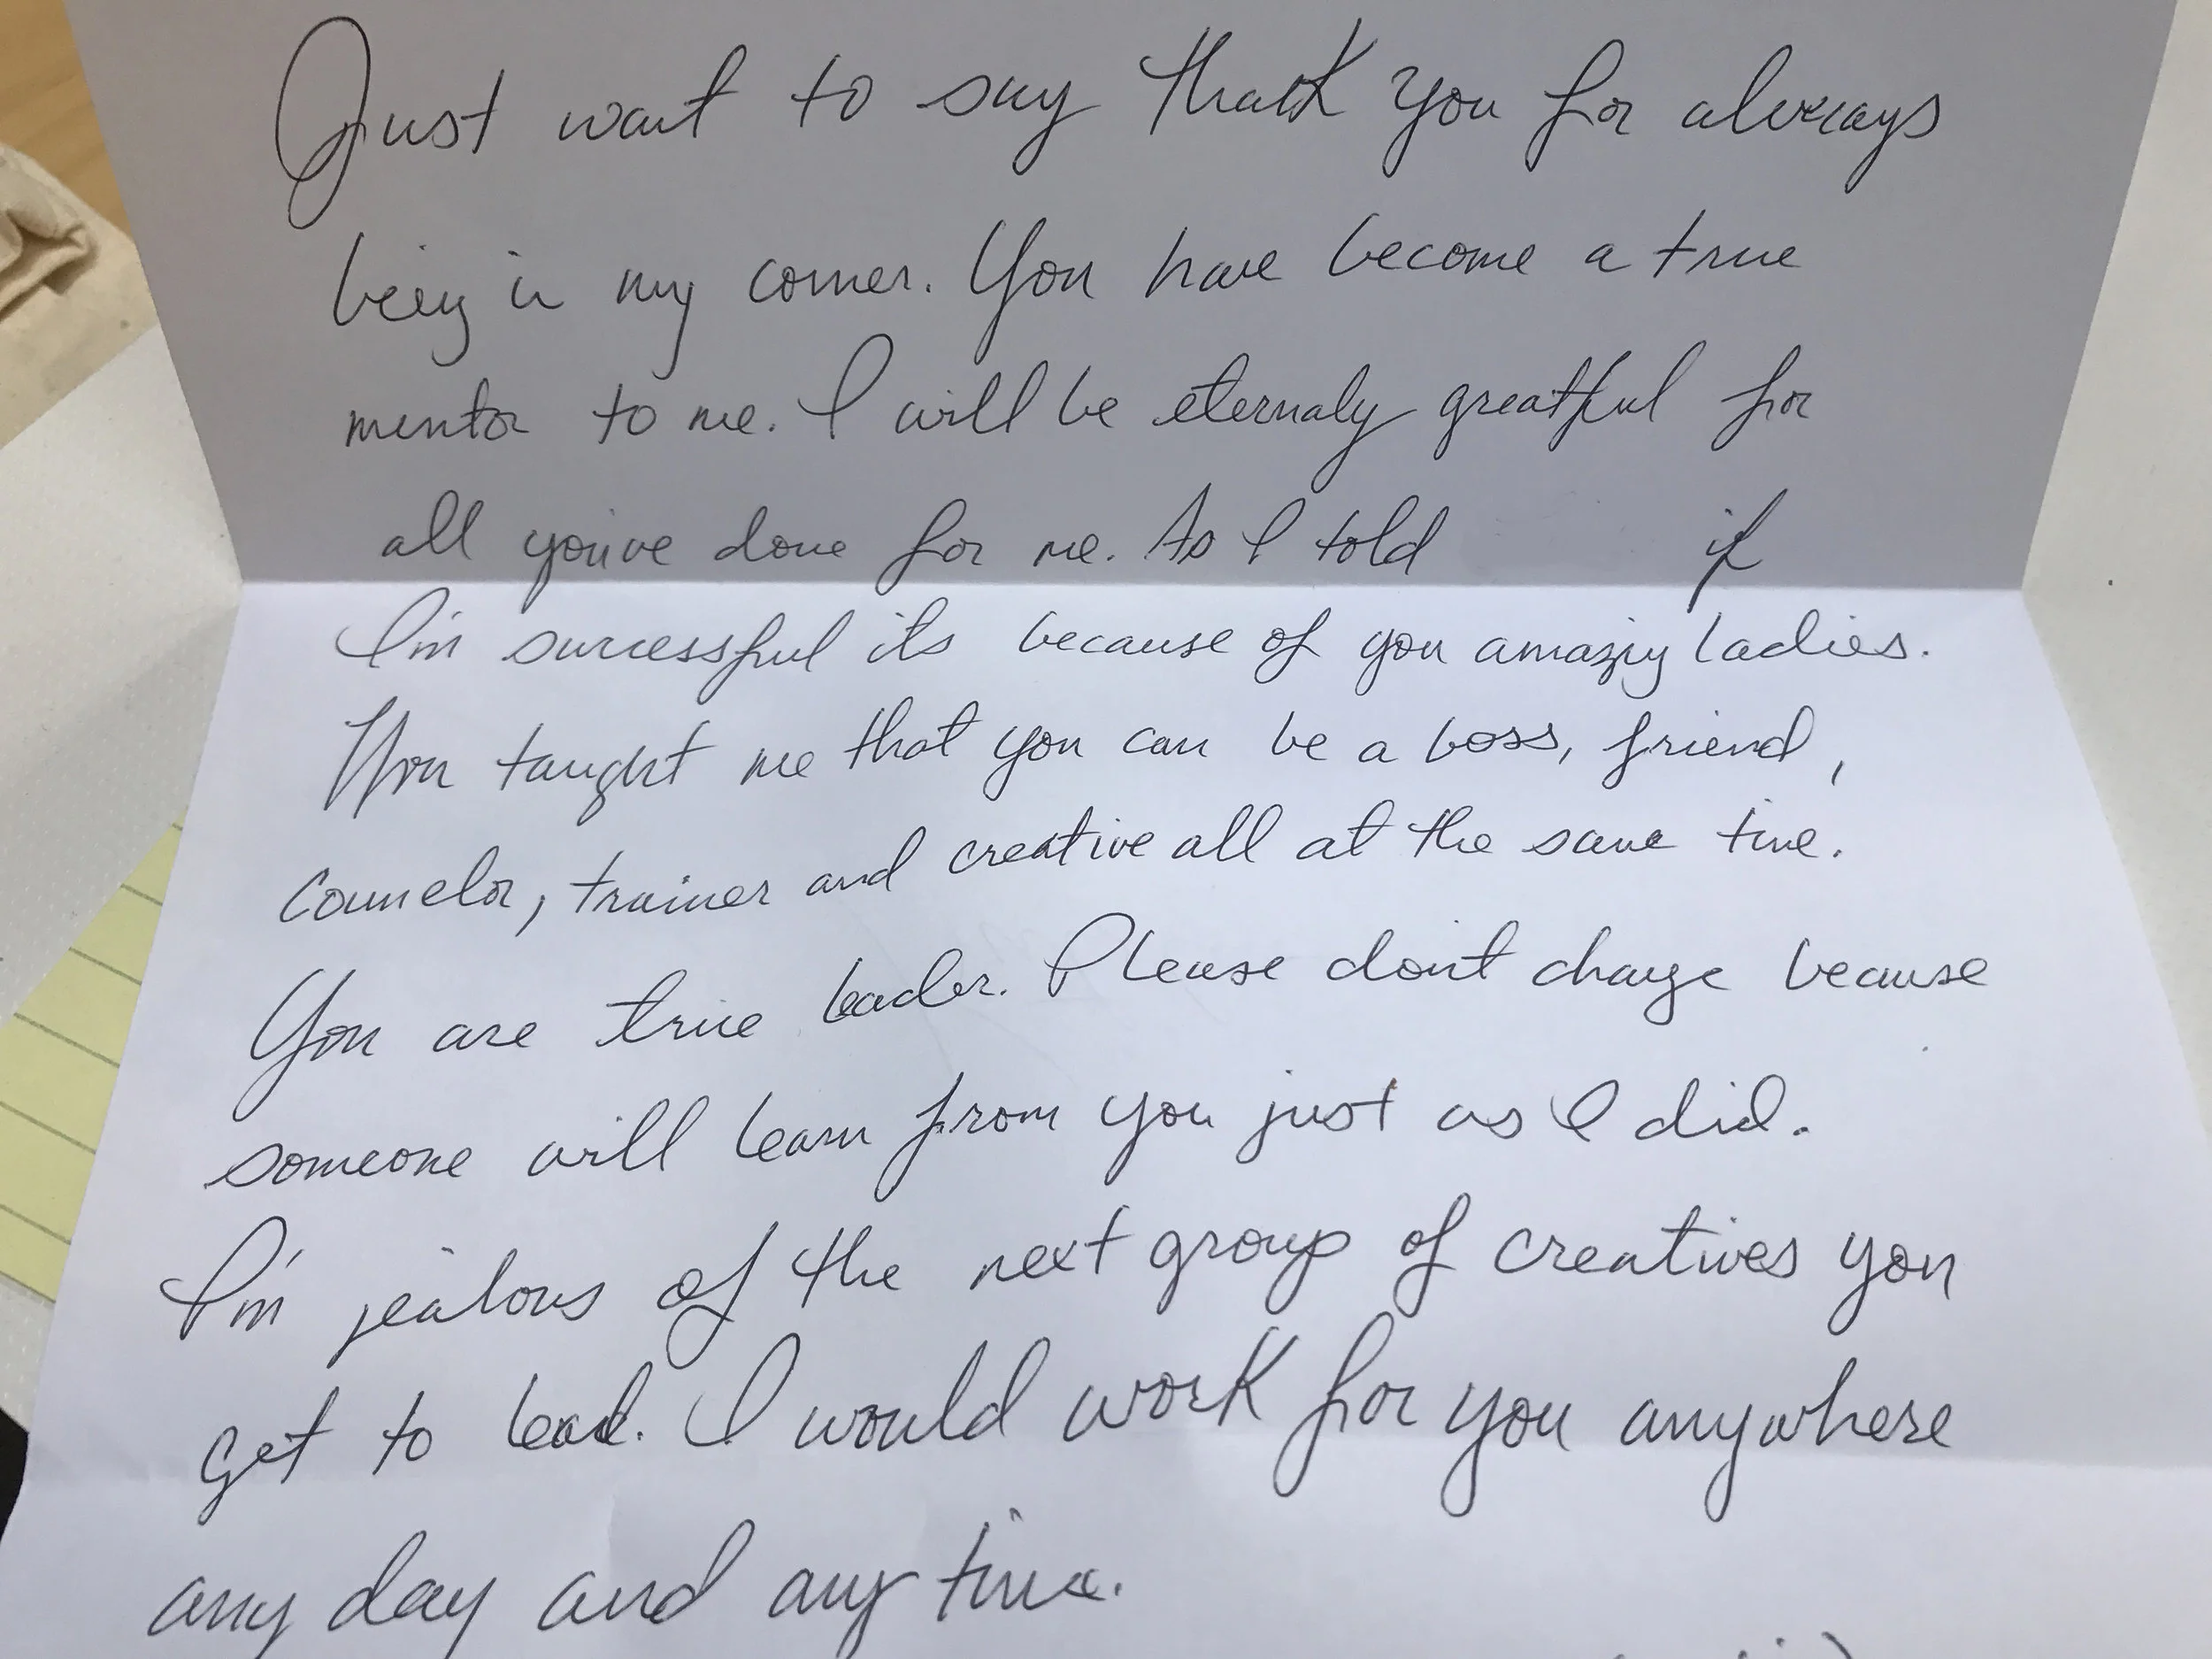 Just want to say thank you for always
being in my corner. You have become a true
mentor to me. I will be eternaly greatful for
all you've done for me. As I told if
I'm successful its because of you amazing ladies.
You taught me that you can be a boss, friend,
Counelor, trainer and creative all at the same time.
You are true leader. Please don't change because
someone will learn from you just as I did.
I'm jealous of the next group of creatives you
get to lead. I would work for you anywhere
any day and any time.